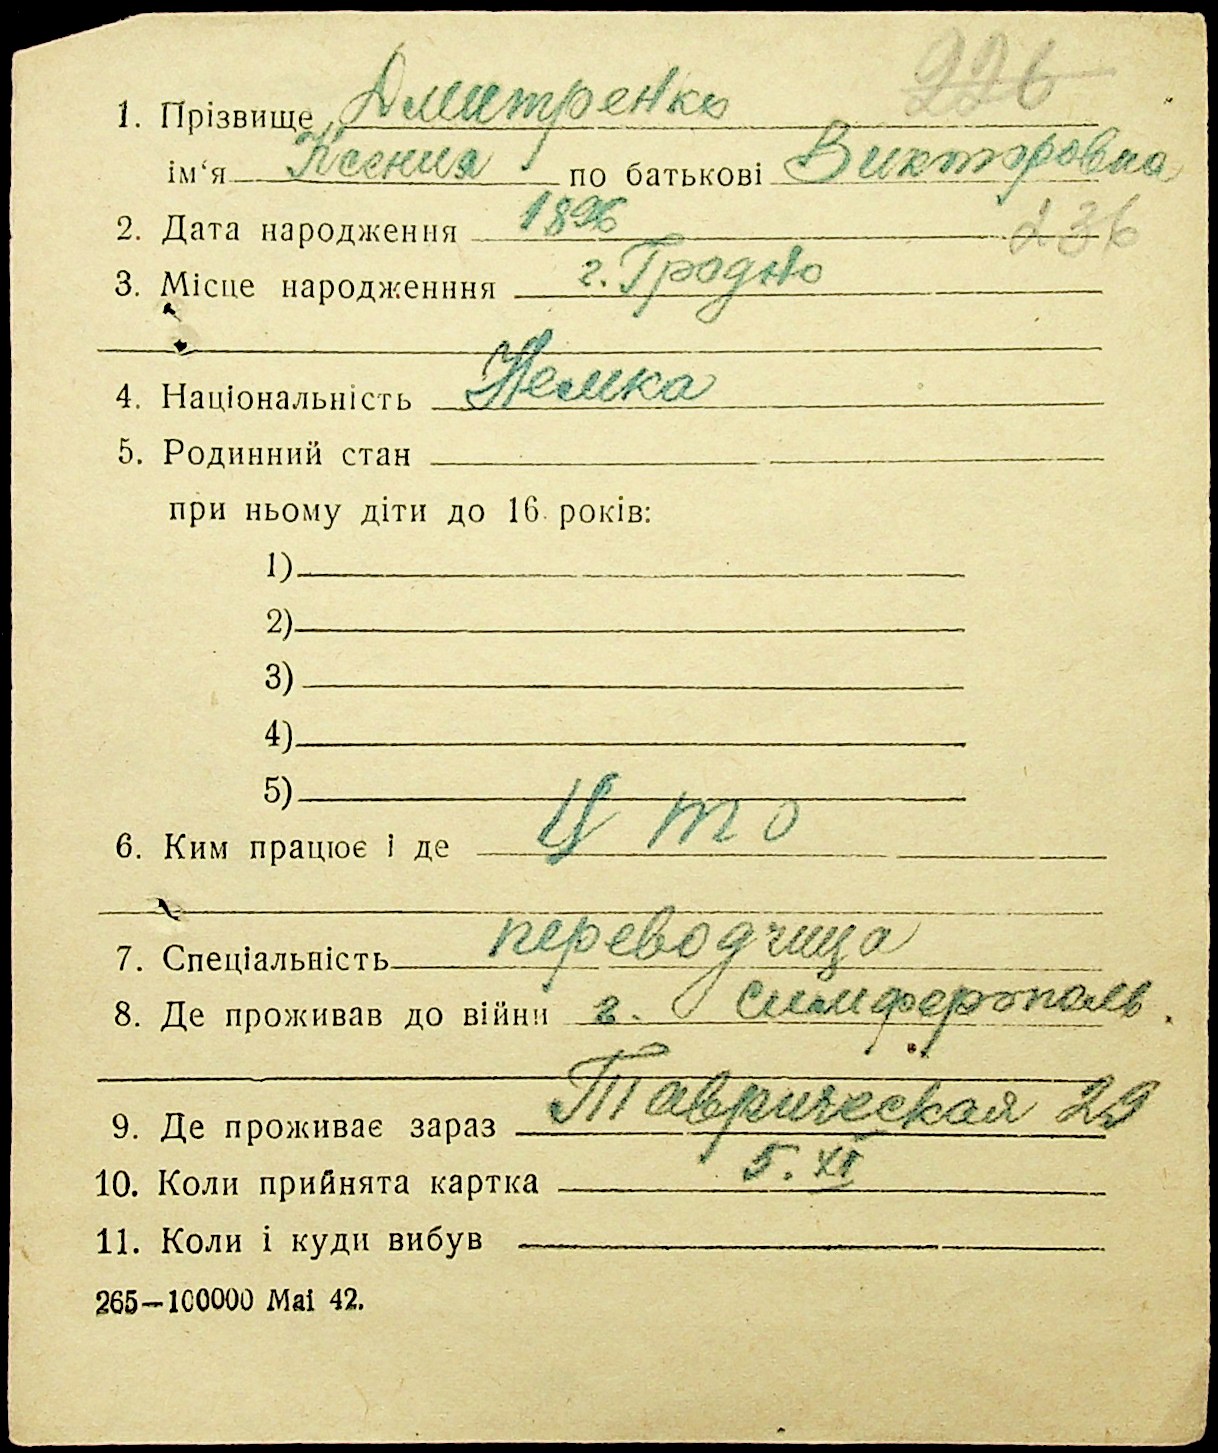 226
1. Прізвище Дмитренко
ім'я Ксения по батькові Викторовна
2. Дата народження 1896
236
3. Місце народженння г. Гродно
4. Національність Немка
5. Родинний стан
при ньому діти до 16 років:
1)
2)
3)
4)
5)
6. Ким працює і де Ц т о
7. Спеціальність переводчица
8. Де проживав до війни г. Симферополь.
9. Де проживає зараз Таврическая 29
10. Коли прийнята картка 5. XI
11. Коли і куди вибув
265—100000 Mai 42.